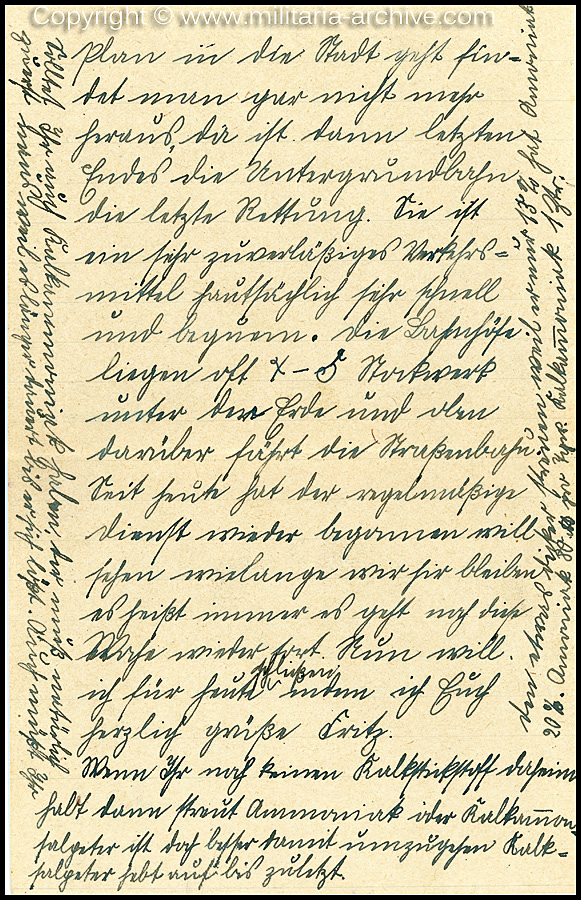 Copyright © www.militaria-archive.com
Plan in die Stadt geht fin-
det man gar nicht mehr
heraus, da ist dann letzten
Endes die Untergrundbahn
die letzte Rettung. Sie ist
ein sehr zuverläßiges Verkehrs-
mittel hautsächlich sehr schnell
und bequem. Die Bahnhöfe
liegen oft 4-5 Stockwerk
unter der Erde und oben
darüber fährt die Straßenbahn.
Seit heute hat der regelmäßige
Dienst wieder begonnen will
sehen wielange wir hir bleiben
es heißt immer es geht noch diese
Woche wieder fort. Nun will
ich für heute schließen indem ich Euch
herzlich grüße Fritz.
Wenn Ihr noch keinen Kalkstickstoff daheim
habt dann streut Ammoniak oder Kalkammon
salpeter ist doch besser damit umzugehen Kalk-
salpeter hebt auf bis zuletzt.
Solltet Ihr auch Kalkammoniak haben, der muß natürlich
zuerst weil es länger dauert bis er sich löst. Auch müßt Ihr
den etwas dicker streuen weil er nur 15% hat Amoniak
20%. Amoniak kg pro Kalkamoniak 1 Ztr.